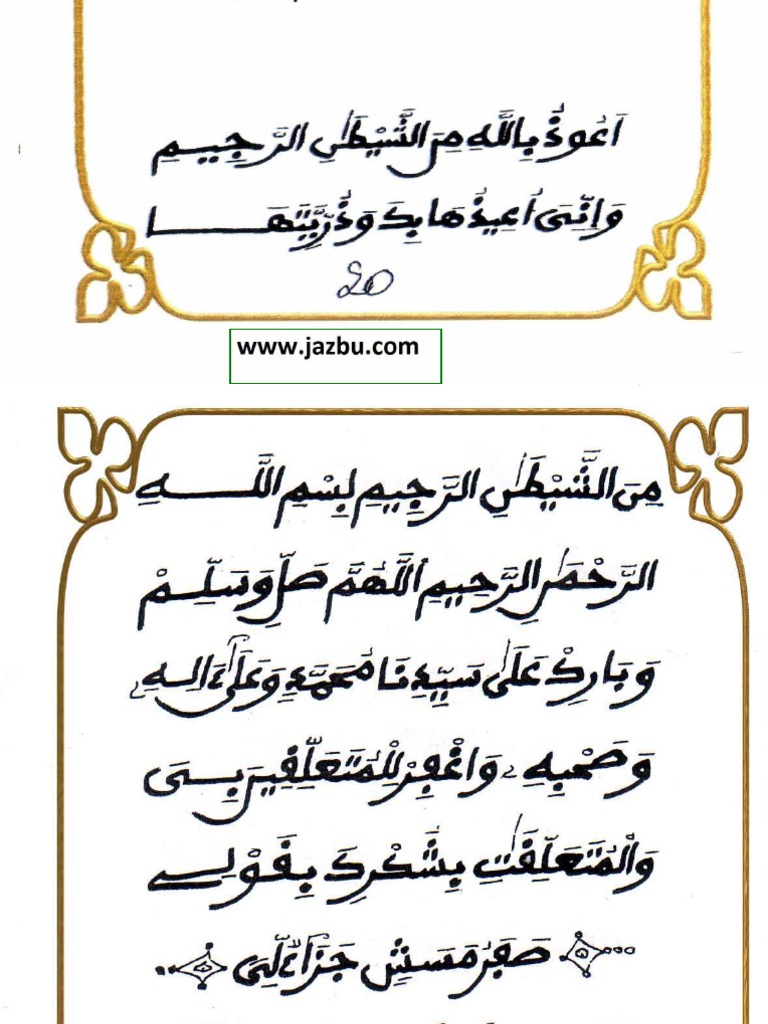 أَعُوذُ بِاللَّهِ مِنَ الشَّيْطَٰنِ الرَّجِيمِ
وَإِنِّى أُعِيذُهَا بِكَ وَذُرِّيَّتَهَا
www.jazbu.com
مِنَ الشَّيْطَٰنِ الرَّجِيمِ بِسْمِ اللَّهِ
الرَّحْمَٰنِ الرَّحِيمِ اللَّهُمَّ صَلِّ وَسَلِّمْ
وَبَارِكْ عَلَىٰ سَيِّدِنَا مُحَمَّدٍ وَعَلَىٰ ءَالِهِ
وَصَحْبِهِ وَاغْفِرْ لِلْمُتَعَلِّقِينَ بِى
وَالْمُتَعَلِّقَٰتِ بِشُكْرِكَ بِقَوْلِى
جَزَاءً لِى